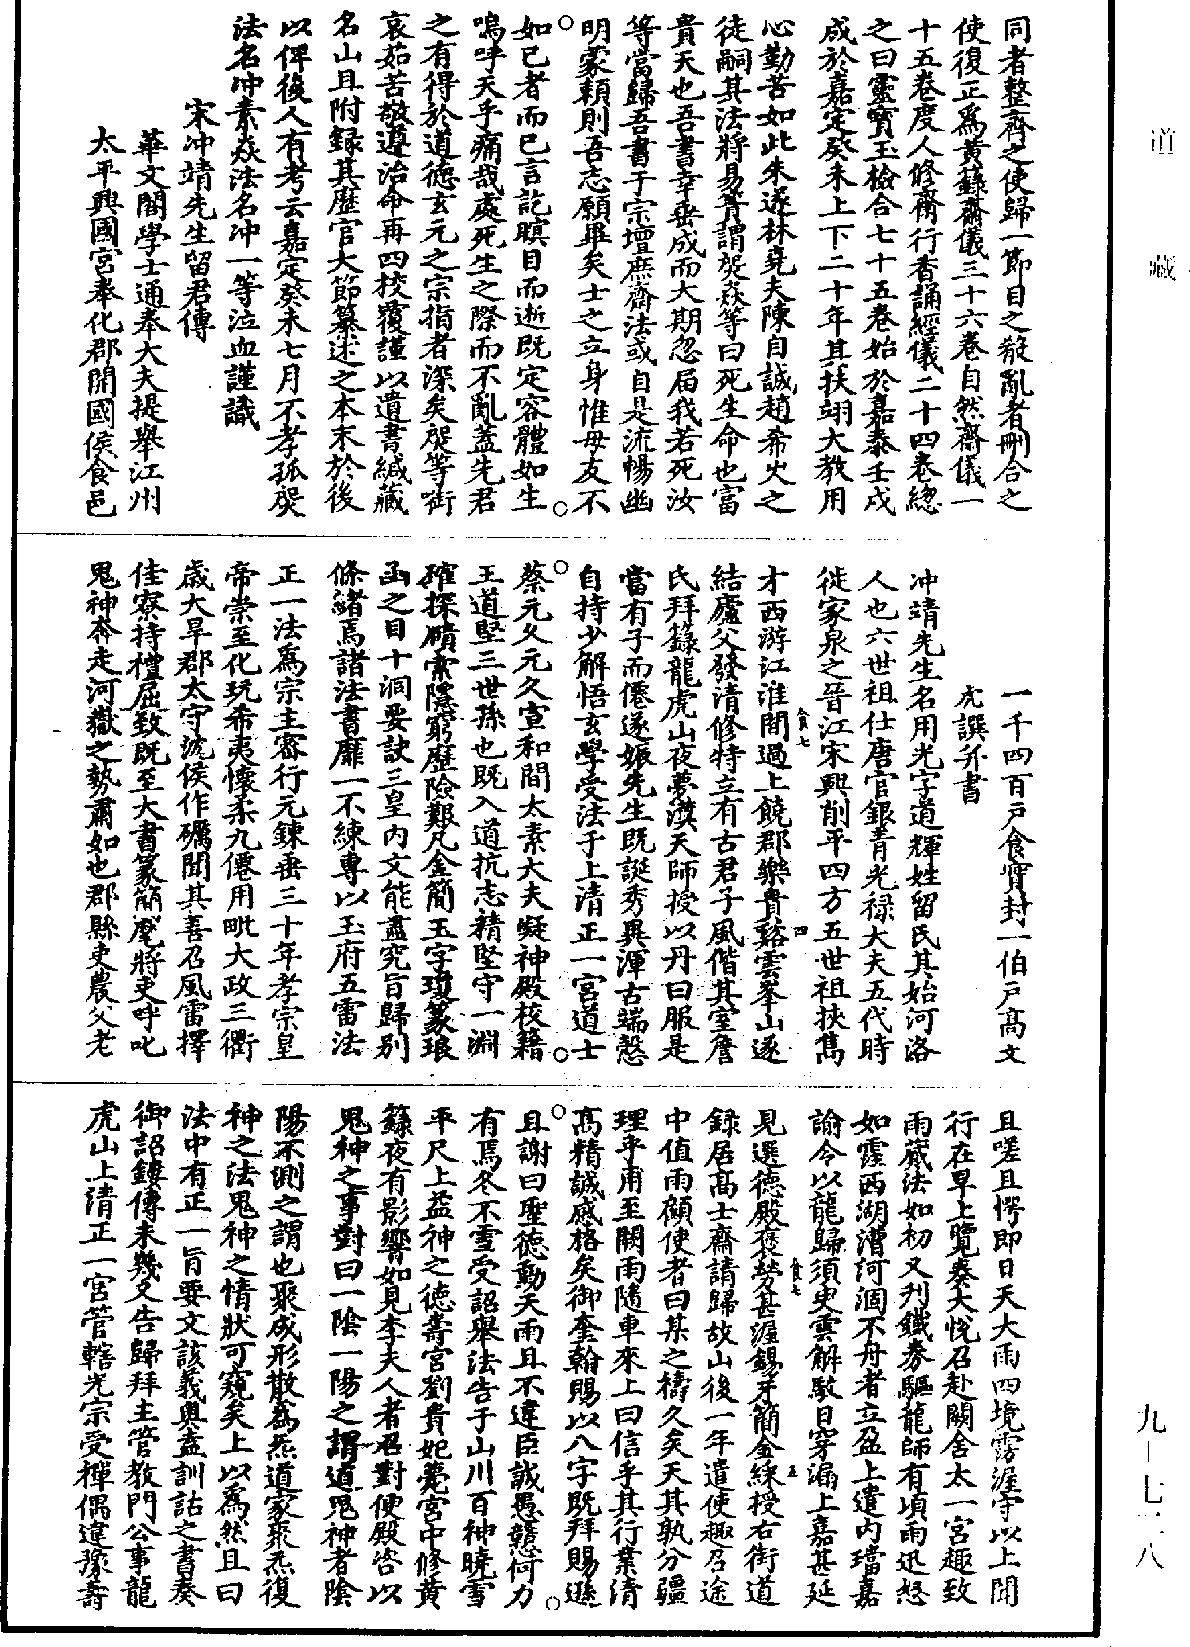 道藏
同者整齊之使歸一節目之散亂者刪合之
使復正爲黃籙齋儀三十六卷自然齋儀一
十五卷度人修齋行香誦經儀二十四卷緫
之曰靈寳玉檢合七十五卷始於嘉泰壬戌
成於嘉定癸未上下二十年其扶翊大教用
心勤苦如此朱遂林堯夫陳自誠趙希火之
徒嗣其法將易簀謂煚焱等曰死生命也富
貴天也吾書幸垂成而大期忽屆我若死汝
等當歸吾書于宗壇庶齋法或自是流暢幽
明蒙頼則吾志願畢矣士之立身惟毋友不
如已者而已言訖瞑目而逝既定容體如生
嗚呼天乎痛哉處死生之際而不亂蓋先君
之有得於道德玄元之宗指者深矣煚等銜
哀茹苦敬遵治命再四校覆謹以遺書緘藏
名山且附録其歷官大節纂述之本末於後
以俾後人有考云嘉定癸未七月不孝孤煚
法名冲素焱法名冲一等泣血謹識
宋冲靖先生留君傳
華文閣學士通奉大夫提舉江州
太平興國宮奉化郡開國侯食邑
一千四百戸食實封一伯戸髙文
虎譔并書
冲靖先生名用光字道輝姓留氏其始河洛
人也六世祖仕唐官銀青光禄大夫五代時
徙家泉之晉江宋興削平四方五世祖挾雋
才西游江淮間過上饒郡樂貴谿雲峯山遂
結廬父發清修特立有古君子風偕其室詹
氏拜籙龍虎山夜夢漢天師授以丹曰服是
當有子而僊遂娠先生既誕秀異渾古端慤
自持少解悟玄學受法于上清正一宮道士
蔡元久元久宣和間太素大夫凝神殿校籍
王道堅三世孫也既入道抗志精堅守一淵
確探賾索隱窮歷險艱凡金簡玉字瓊篆琅
函之目十洞要訣三皇内文能盡究旨歸别
條緒焉諸法書靡一不練專以玉府五雷法
正一法爲宗主審行元鍊垂三十年孝宗皇
帝崇至化玩希夷懷柔九僊用毗大政三衢
歲大旱郡太守沈侯作礪聞其善召風雷擇
佳寮持檀屈致既至大書篆簡麾將吏呼叱
鬼神奔走河嶽之勢肅如也郡縣吏農父老
且嗟且愕即日天大雨四境霑渥守以上聞
行在早上覽奏大悅召赴闕舍太一宮趣致
雨蕆法如初又刋鐵券驅龍師有頃雨迅怒
如霔西湖漕河涸不舟者立盈上遣内璫嘉
諭令以龍歸須臾雲解駮日穿漏上嘉甚延
見選德殿褒勞甚渥錫牙簡金綵授右街道
録居髙士齋請歸故山後一年遣使趣召途
中值雨顧使者曰某之禱久矣天其孰分疆
理乎甫至闕雨隨車來上曰信乎其行業清
髙精誠感格矣御奎翰賜以八字既拜賜遜
且謝曰聖德動天雨且不違臣誠愚戇何力
有焉冬不雪受詔舉法告于山川百神曉雪
平尺上益神之德壽宮劉貴妃薨宮中修黄
籙夜有影響如見李夫人者召對便殿咨以
鬼神之事對曰一陰一陽之謂道鬼神者陰
陽不測之謂也聚成形散爲炁道家聚炁復
神之法鬼神之情狀可窺矣上以爲然且曰
法中有正一旨要文該義奥盍訓詁之書奏
御詔鏤傳未幾又告歸拜主管教門公事龍
虎山上清正一宮管轄光宗受禪偶違豫壽
食七
四
食七
五
九—七一八